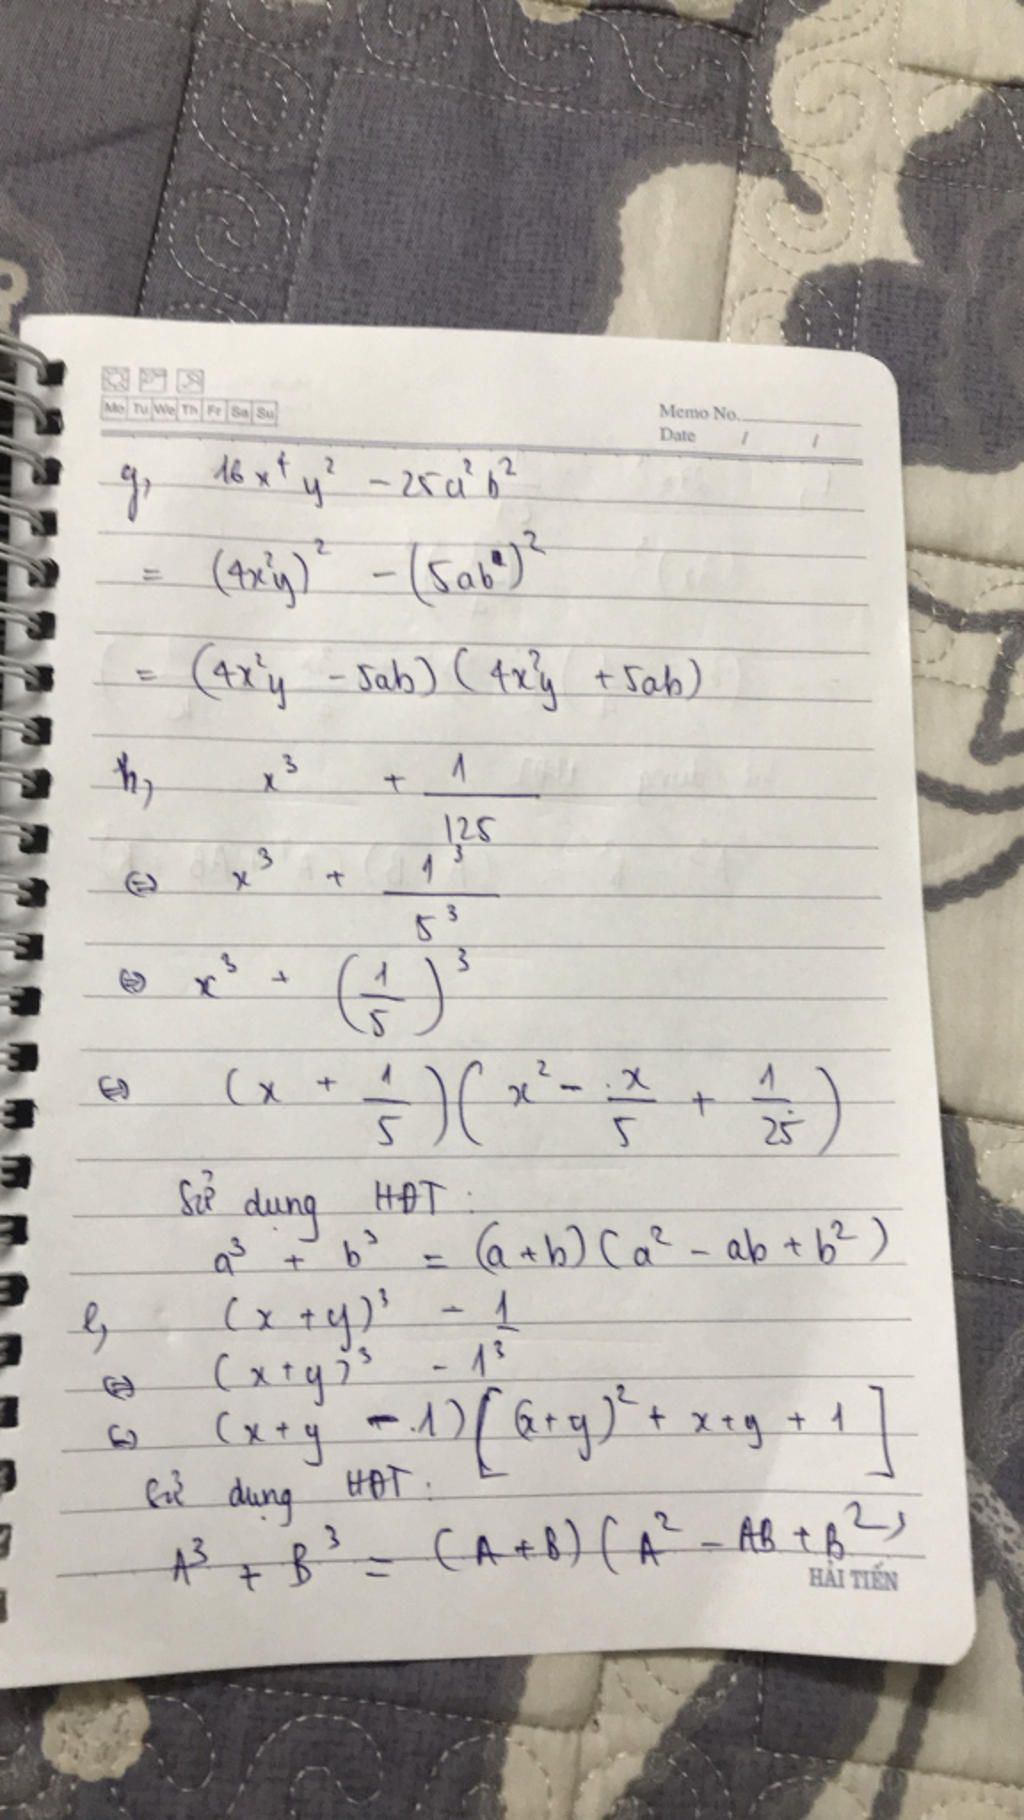 Mo Tu We Th Fr Sa Su
Memo No.
Date / /
g, 16x⁴y² - 25a²b²
= (4x²y)² - (5ab)²
= (4x²y - 5ab)(4x²y + 5ab)
h, x³ + 1/125
⇔ x³ + 1³/5³
⇔ x³ + (1/5)³
⇔ (x + 1/5)(x² - x/5 + 1/25)
Sử dụng HĐT:
a³ + b³ = (a+b)(a² - ab + b²)
l, (x+y)³ - 1
⇔ (x+y)³ - 1³
⇔ (x+y - 1)[(x+y)² + x+y + 1]
Sử dụng HĐT:
A³ + B³ = (A+B)(A² - AB + B²)
HẢI TIẾN